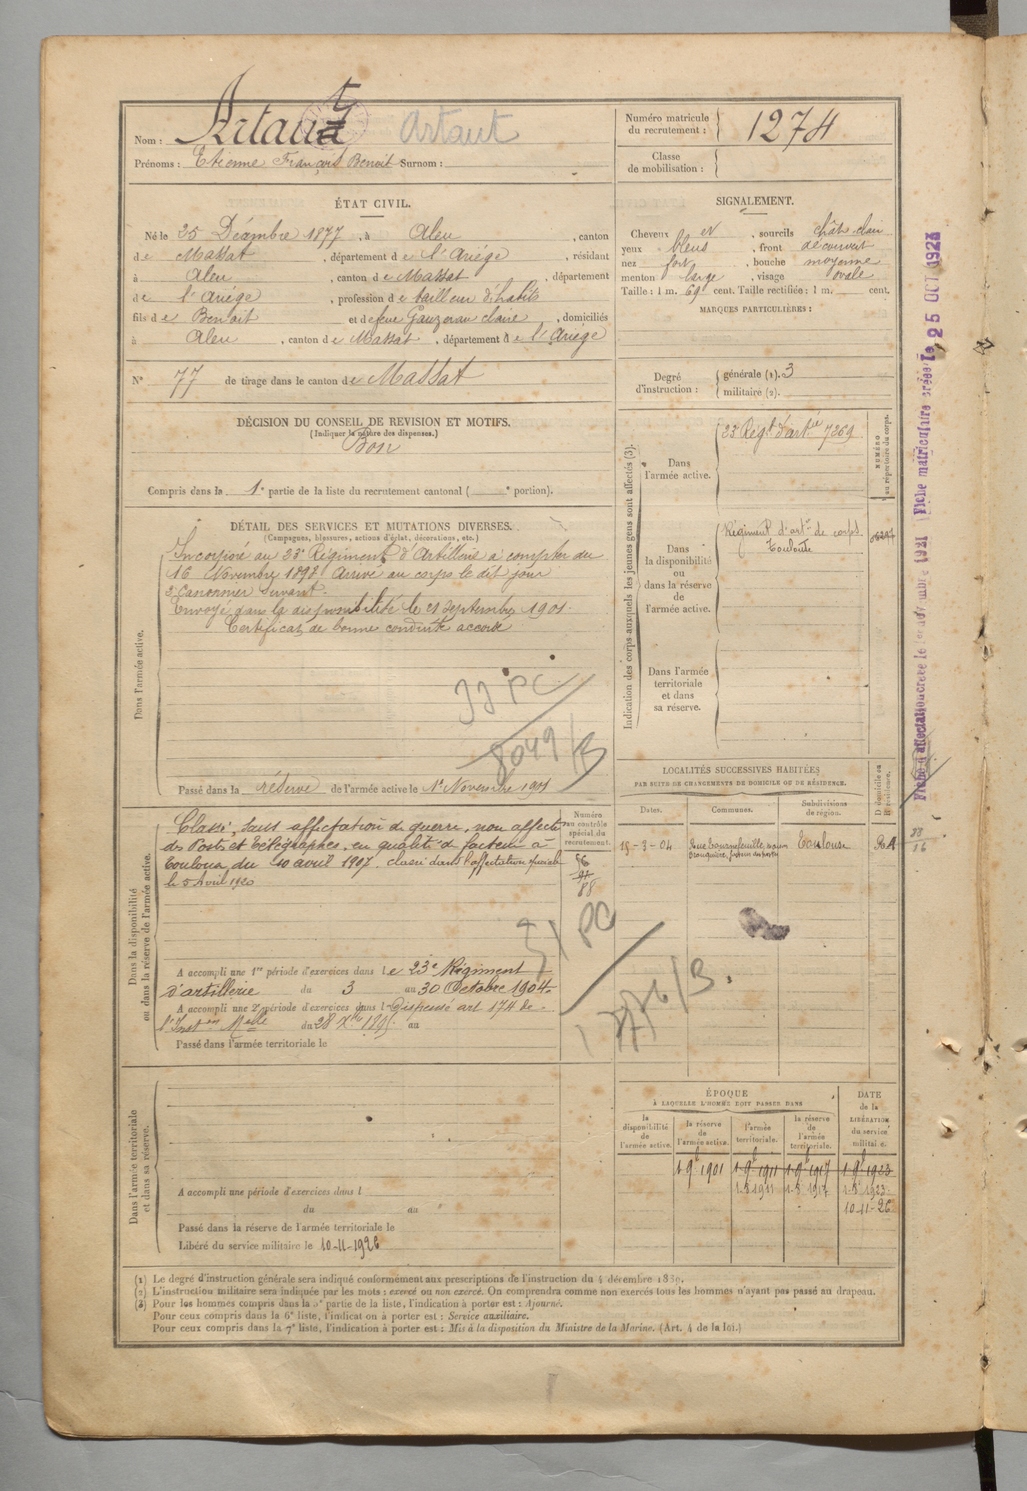 Nom : Artaut Artaut
Prénoms : Etienne François Benoit Surnom :
Numéro matricule
du recrutement : 1274
Classe
de mobilisation :
ÉTAT CIVIL.
Né le 25 Décembre 1877, à Aleu, canton
de Massat, département de l'Ariége, résidant
à Aleu, canton de Massat, département
de l'Ariége, profession de tailleur d'habits
fils de Benoit et de feue Gauzeran claire, domiciliés
à Aleu, canton de Massat, département de l'Ariége
N° 77 de tirage dans le canton de Massat
SIGNALEMENT.
Cheveux et, sourcils chât. clair
yeux bleus, front découvert
nez fort, bouche moyenne
menton large, visage ovale
Taille : 1 m. 69 cent. Taille rectifiée : 1 m. cent.
MARQUES PARTICULIÈRES :
Degré
d'instruction :
générale (1). 3
militaire (2).
DÉCISION DU CONSEIL DE REVISION ET MOTIFS.
(Indiquer la nature des dispenses.)
Bon
Compris dans la 1e partie de la liste du recrutement cantonal ( e portion).
DÉTAIL DES SERVICES ET MUTATIONS DIVERSES.
(Campagnes, blessures, actions d'éclat, décorations, etc.)
Dans l'armée active.
Incorporé au 23e Régiment d'Artillerie à compter du
16 Novembre 1898 Arrivé au corps le dit jour
2e Canonnier Servant.
Envoyé dans la disponibilité le 21 Septembre 1901.
Certificat de bonne conduite accordé
33 PC
8049/B
Passé dans la réserve de l'armée active le 1er Novembre 1901
Indication des corps auxquels les jeunes gens sont affectés (3).
Dans
l'armée active.
23e Régt d'artie 7269
NUMÉRO
au répertoire du corps.
Dans
la disponibilité
ou
dans la réserve
de
l'armée active.
Régiment d'artie de corps
Toulouse
Dans l'armée
territoriale
et dans
sa réserve.
LOCALITÉS SUCCESSIVES HABITÉES
PAR SUITE DE CHANGEMENTS DE DOMICILE OU DE RÉSIDENCE.
Dates.
Communes.
Subdivisions
de région.
D domicile ou
R résidence.
18-3-04 Rue Tournefeuille, maison Toulouse R A
Dans la disponibilité
ou dans la réserve de l'armée active.
Numéro
au contrôle
spécial du
recrutement.
Classé sans affectation de guerre, non affecté
des Postes et Télégraphes, en qualité de facteur à
Toulouse du 10 avril 1907, classé dans l'affectation spéciale
le 5 Avril 1920
88
51 PC
A accompli une 1re période d'exercices dans le 23e Régiment
d'artillerie du 3 au 30 Octobre 1904.
A accompli une 2e période d'exercices dans l Dispensé art 174 de
l'Inston Melle du 28 Xbre 1895 au
Passé dans l'armée territoriale le
Dans l'armée territoriale
et dans sa réserve.
A accompli une période d'exercices dans l
du au
Passé dans la réserve de l'armée territoriale le
Libéré du service militaire le 10-11-1926
ÉPOQUE
À LAQUELLE L'HOMME DOIT PASSER DANS
la
disponibilité
de
l'armée active.
la réserve
de
l'armée active.
l'armée
territoriale.
la réserve
de
l'armée
territoriale.
DATE
de la
LIBÉRATION
du service
militaire.
1-9b 1901 1-9b 1911 1-9b 1917 1-9b 1923
1-8 1911 1-8 1917 1-8 1923
10-11-26
Fiche matriculaire créée le 25 OCT 1921
(1) Le degré d'instruction générale sera indiqué conformément aux prescriptions de l'instruction du 4 décembre 1889.
(2) L'instruction militaire sera indiquée par les mots : exercé ou non exercé. On comprendra comme non exercés tous les hommes n'ayant pas passé au drapeau.
(3) Pour les hommes compris dans la 5e partie de la liste, l'indication à porter est : Ajourné.
Pour ceux compris dans la 6e liste, l'indication à porter est : Service auxiliaire.
Pour ceux compris dans la 7e liste, l'indication à porter est : Mis à la disposition du Ministre de la Marine. (Art. 4 de la loi.)